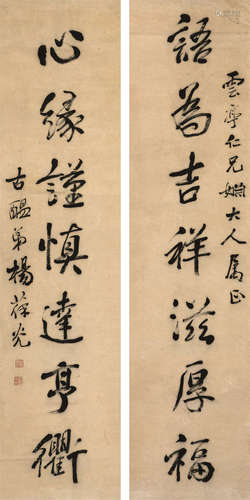 雲亭仁兄姻大人属正
語為吉祥滋厚福
心緣謹慎達亨衢
古醞弟楊葆光